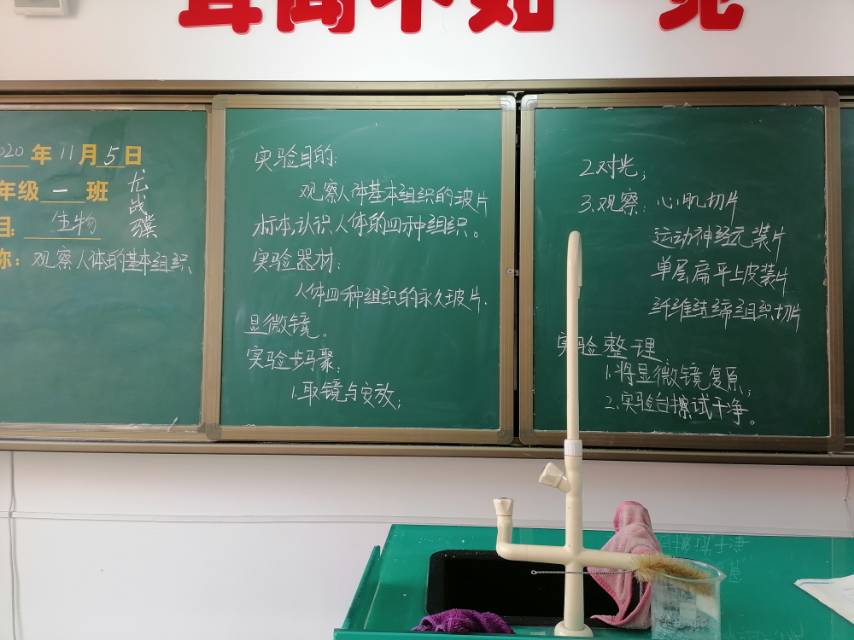 2020年11月5日
年级一班
目:生物
称:观察人体的基本组织
实验目的:
观察人体基本组织的玻片
标本,认识人体的四种组织。
实验器材:
人体四种组织的永久玻片.
显微镜。
实验步骤:
1.取镜与安放;
2.对光;
3.观察:心肌切片
运动神经元装片
单层扁平上皮装片
纤维结缔组织切片
实验整理
1.将显微镜复原;
2.实验台擦试干净。